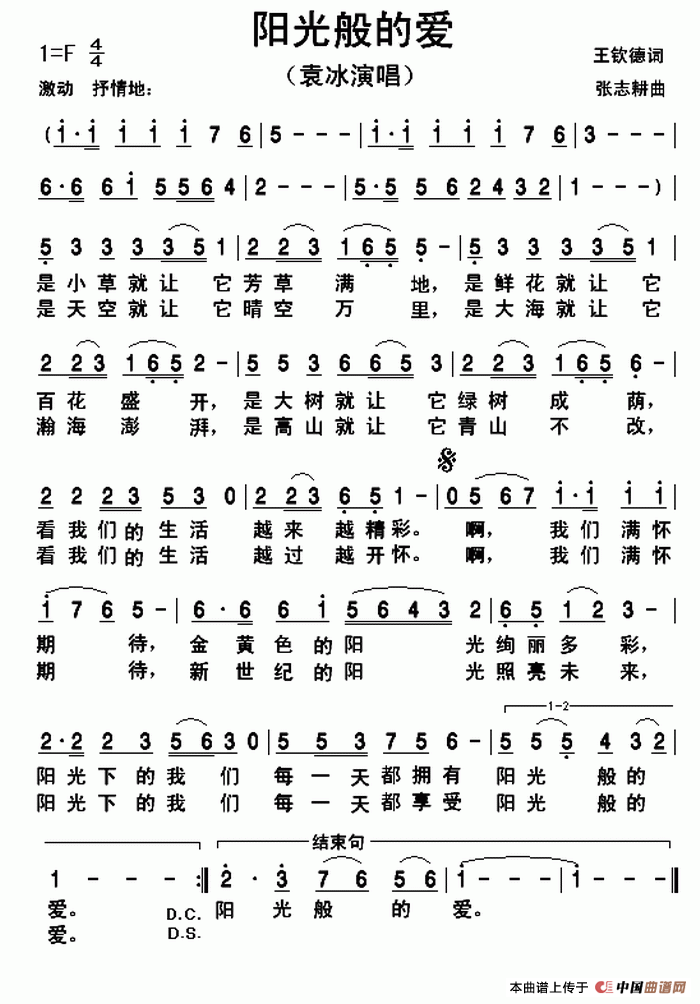 阳光般的爱
1=F 4/4
(袁冰演唱)
王钦德词
激动 抒情地:
张志耕曲
(i·i i i i 7 6 | 5 - - - | i·i i i i 7 6 | 3 - - -
6·6 6 i 5 5 6 4 | 2 - - - | 5·5 5 6 2 4 3 2 | 1 - - - )
5 3 3 3 3 5 1 | 2 2 3 1 6 5 5 - | 5 3 3 3 3 5 1 |
是小草就让它芳草满地,是鲜花就让它
是天空就让它晴空万里,是大海就让它
2 2 3 1 6 5 2 - | 5 5 3 6 5 3 1 | 2 2 3 1 6 5 6 - |
百花盛开,是大树就让它绿树成荫,
瀚海澎湃,是高山就让它青山不改,
2 2 2 3 5 3 0 | 2 2 3 6 5 1 - | 0 5 6 7 i·i i i |
看我们的生活越来越精彩。啊,我们满怀
看我们的生活越过越开怀。啊,我们满怀
i 7 6 5 - | 6·6 6 i 5 6 4 3 2 | 6 5 1 2 3 - |
期待,金黄色的阳光绚丽多彩,
期待,新世纪的阳光照亮未来,
1-2
2·2 2 3 5 6 3 0 | 5 5 3 7 5 6 - | 5 5 5 4 3 2 |
阳光下的我们每一天都拥有阳光般的
阳光下的我们每一天都享受阳光般的
结束句
1 - - - :‖ 2 · 3 7 6 5 6 | i - - - | i - - - ‖
爱。 D.C. 阳光般的爱。
爱。 D.S.
本曲谱上传于 中国曲谱网